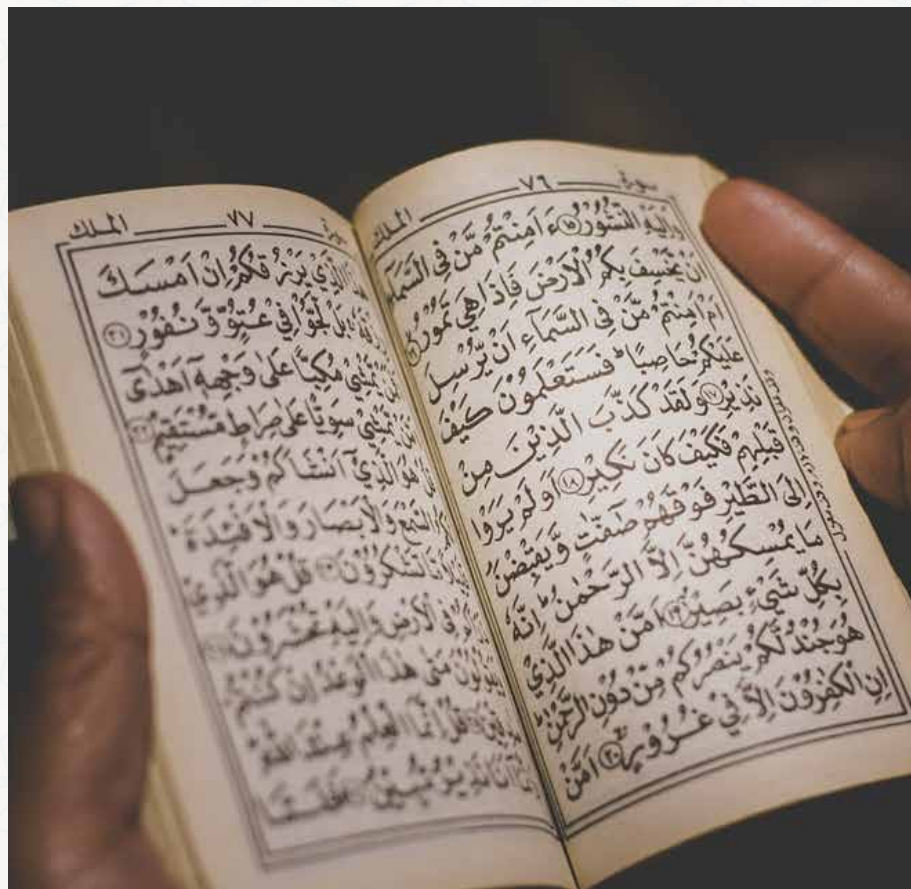 سورة ٧٦ الملك
وَاِلَيْهِ النُّشُوْرُ ١٥ ءَاَمِنْتُمْ مَّنْ فِى السَّمَآءِ
اَنْ يَّخْسِفَ بِكُمُ الْاَرْضَ فَاِذَا هِيَ تَمُوْرُ ١٦
اَمْ اَمِنْتُمْ مَّنْ فِى السَّمَآءِ اَنْ يُّرْسِلَ
عَلَيْكُمْ حَاصِبًا ؕ فَسَتَعْلَمُوْنَ كَيْفَ
نَذِيْرِ ١٧ وَلَقَدْ كَذَّبَ الَّذِيْنَ مِنْ
قَبْلِهِمْ فَكَيْفَ كَانَ نَكِيْرِ ١٨ اَوَلَمْ يَرَوْا
اِلَى الطَّيْرِ فَوْقَهُمْ صٰٓفّٰتٍ وَّيَقْبِضْنَ
مَا يُمْسِكُهُنَّ اِلَّا الرَّحْمٰنُ ؕ اِنَّهٗ
بِكُلِّ شَيْءٍۢ بَصِيْرٌ ١٩ اَمَّنْ هٰذَا الَّذِيْ
هُوَ جُنْدٌ لَّكُمْ يَنْصُرُكُمْ مِّنْ دُوْنِ الرَّحْمٰنِ ؕ
اِنِ الْكٰفِرُوْنَ اِلَّا فِيْ غُرُوْرٍ ٢٠ اَمَّنْ
سورة ٧٧ الملك
هٰذَا الَّذِيْ يَرْزُقُكُمْ اِنْ اَمْسَكَ
رِزْقَهٗ بَلْ لَّجُّوْا فِيْ عُتُوٍّ وَّنُفُوْرٍ ٢١
يَّمْشِيْ مُكِبًّا عَلٰى وَجْهِهٖٓ اَهْدٰٓى
اَمَّنْ يَّمْشِيْ سَوِيًّا عَلٰى صِرَاطٍ مُّسْتَقِيْمٍ ٢٢
هُوَ الَّذِيْٓ اَنْشَاَكُمْ وَجَعَلَ
السَّمْعَ وَالْاَبْصَارَ وَالْاَفْئِدَةَ ؕ
مَّا تَشْكُرُوْنَ ٢٣ قُلْ هُوَ الَّذِيْ
فِى الْاَرْضِ وَاِلَيْهِ تُحْشَرُوْنَ
يَقُوْلُوْنَ مَتٰى هٰذَا الْوَعْدُ اِنْ كُنْتُمْ
قُلْ اِنَّمَا الْعِلْمُ عِنْدَ اللّٰهِ
اَنَا نَذِيْرٌ مُّبِيْنٌ فَلَمَّا